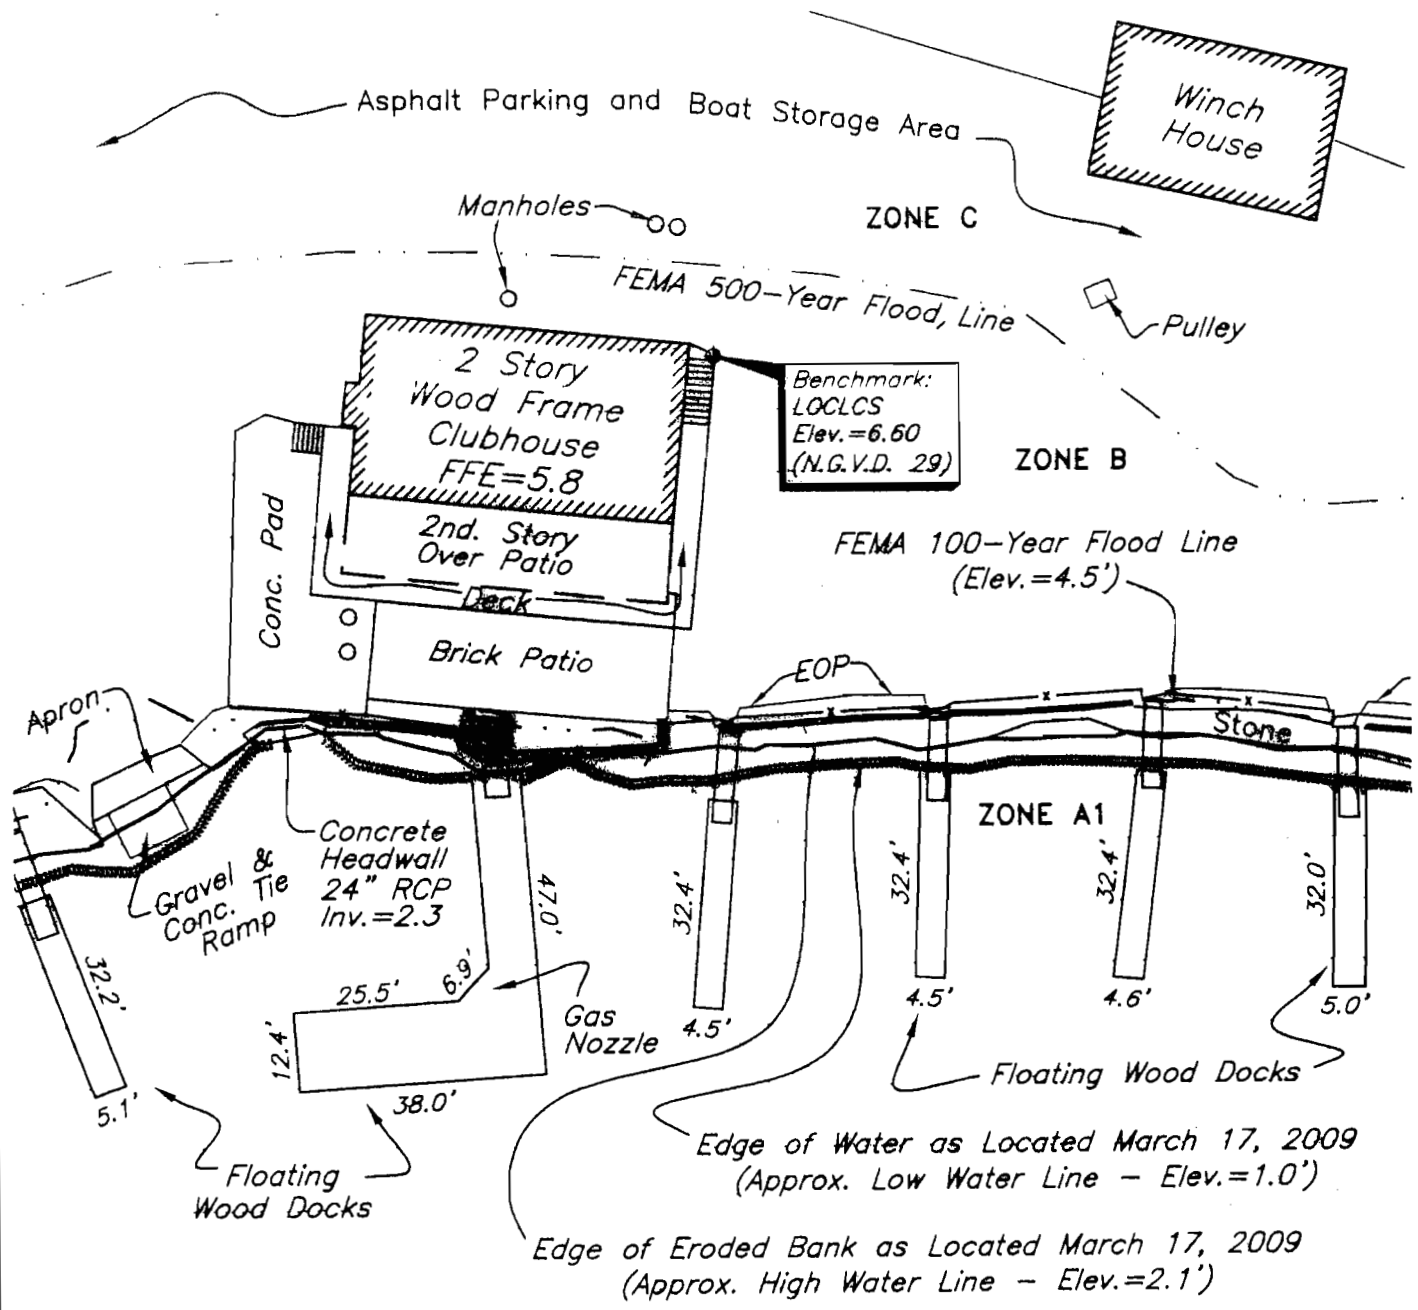 Asphalt Parking and Boat Storage Area
Winch
House
Manholes
ZONE C
FEMA 500-Year Flood, Line
Pulley
2 Story
Wood Frame
Clubhouse
FFE=5.8
Benchmark:
LOCLCS
Elev.=6.60
(N.G.V.D. 29)
ZONE B
Conc. Pad
2nd. Story
Over Patio
Deck
FEMA 100-Year Flood Line
(Elev.=4.5')
Brick Patio
EOP
Apron
Stone
ZONE A1
Concrete
Headwall
24" RCP
Inv.=2.3
Gravel &
Conc. Tie
Ramp
47.0'
32.4'
32.4'
32.4'
32.0'
32.2'
6.9'
25.5'
12.4'
38.0'
5.1'
Gas
Nozzle
4.5'
4.5'
4.6'
5.0'
Floating Wood Docks
Floating
Wood Docks
Edge of Water as Located March 17, 2009
(Approx. Low Water Line - Elev.=1.0')
Edge of Eroded Bank as Located March 17, 2009
(Approx. High Water Line - Elev.=2.1')